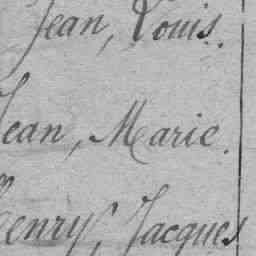 Jean, Louis.
Jean, Marie.
Henry, Jacques